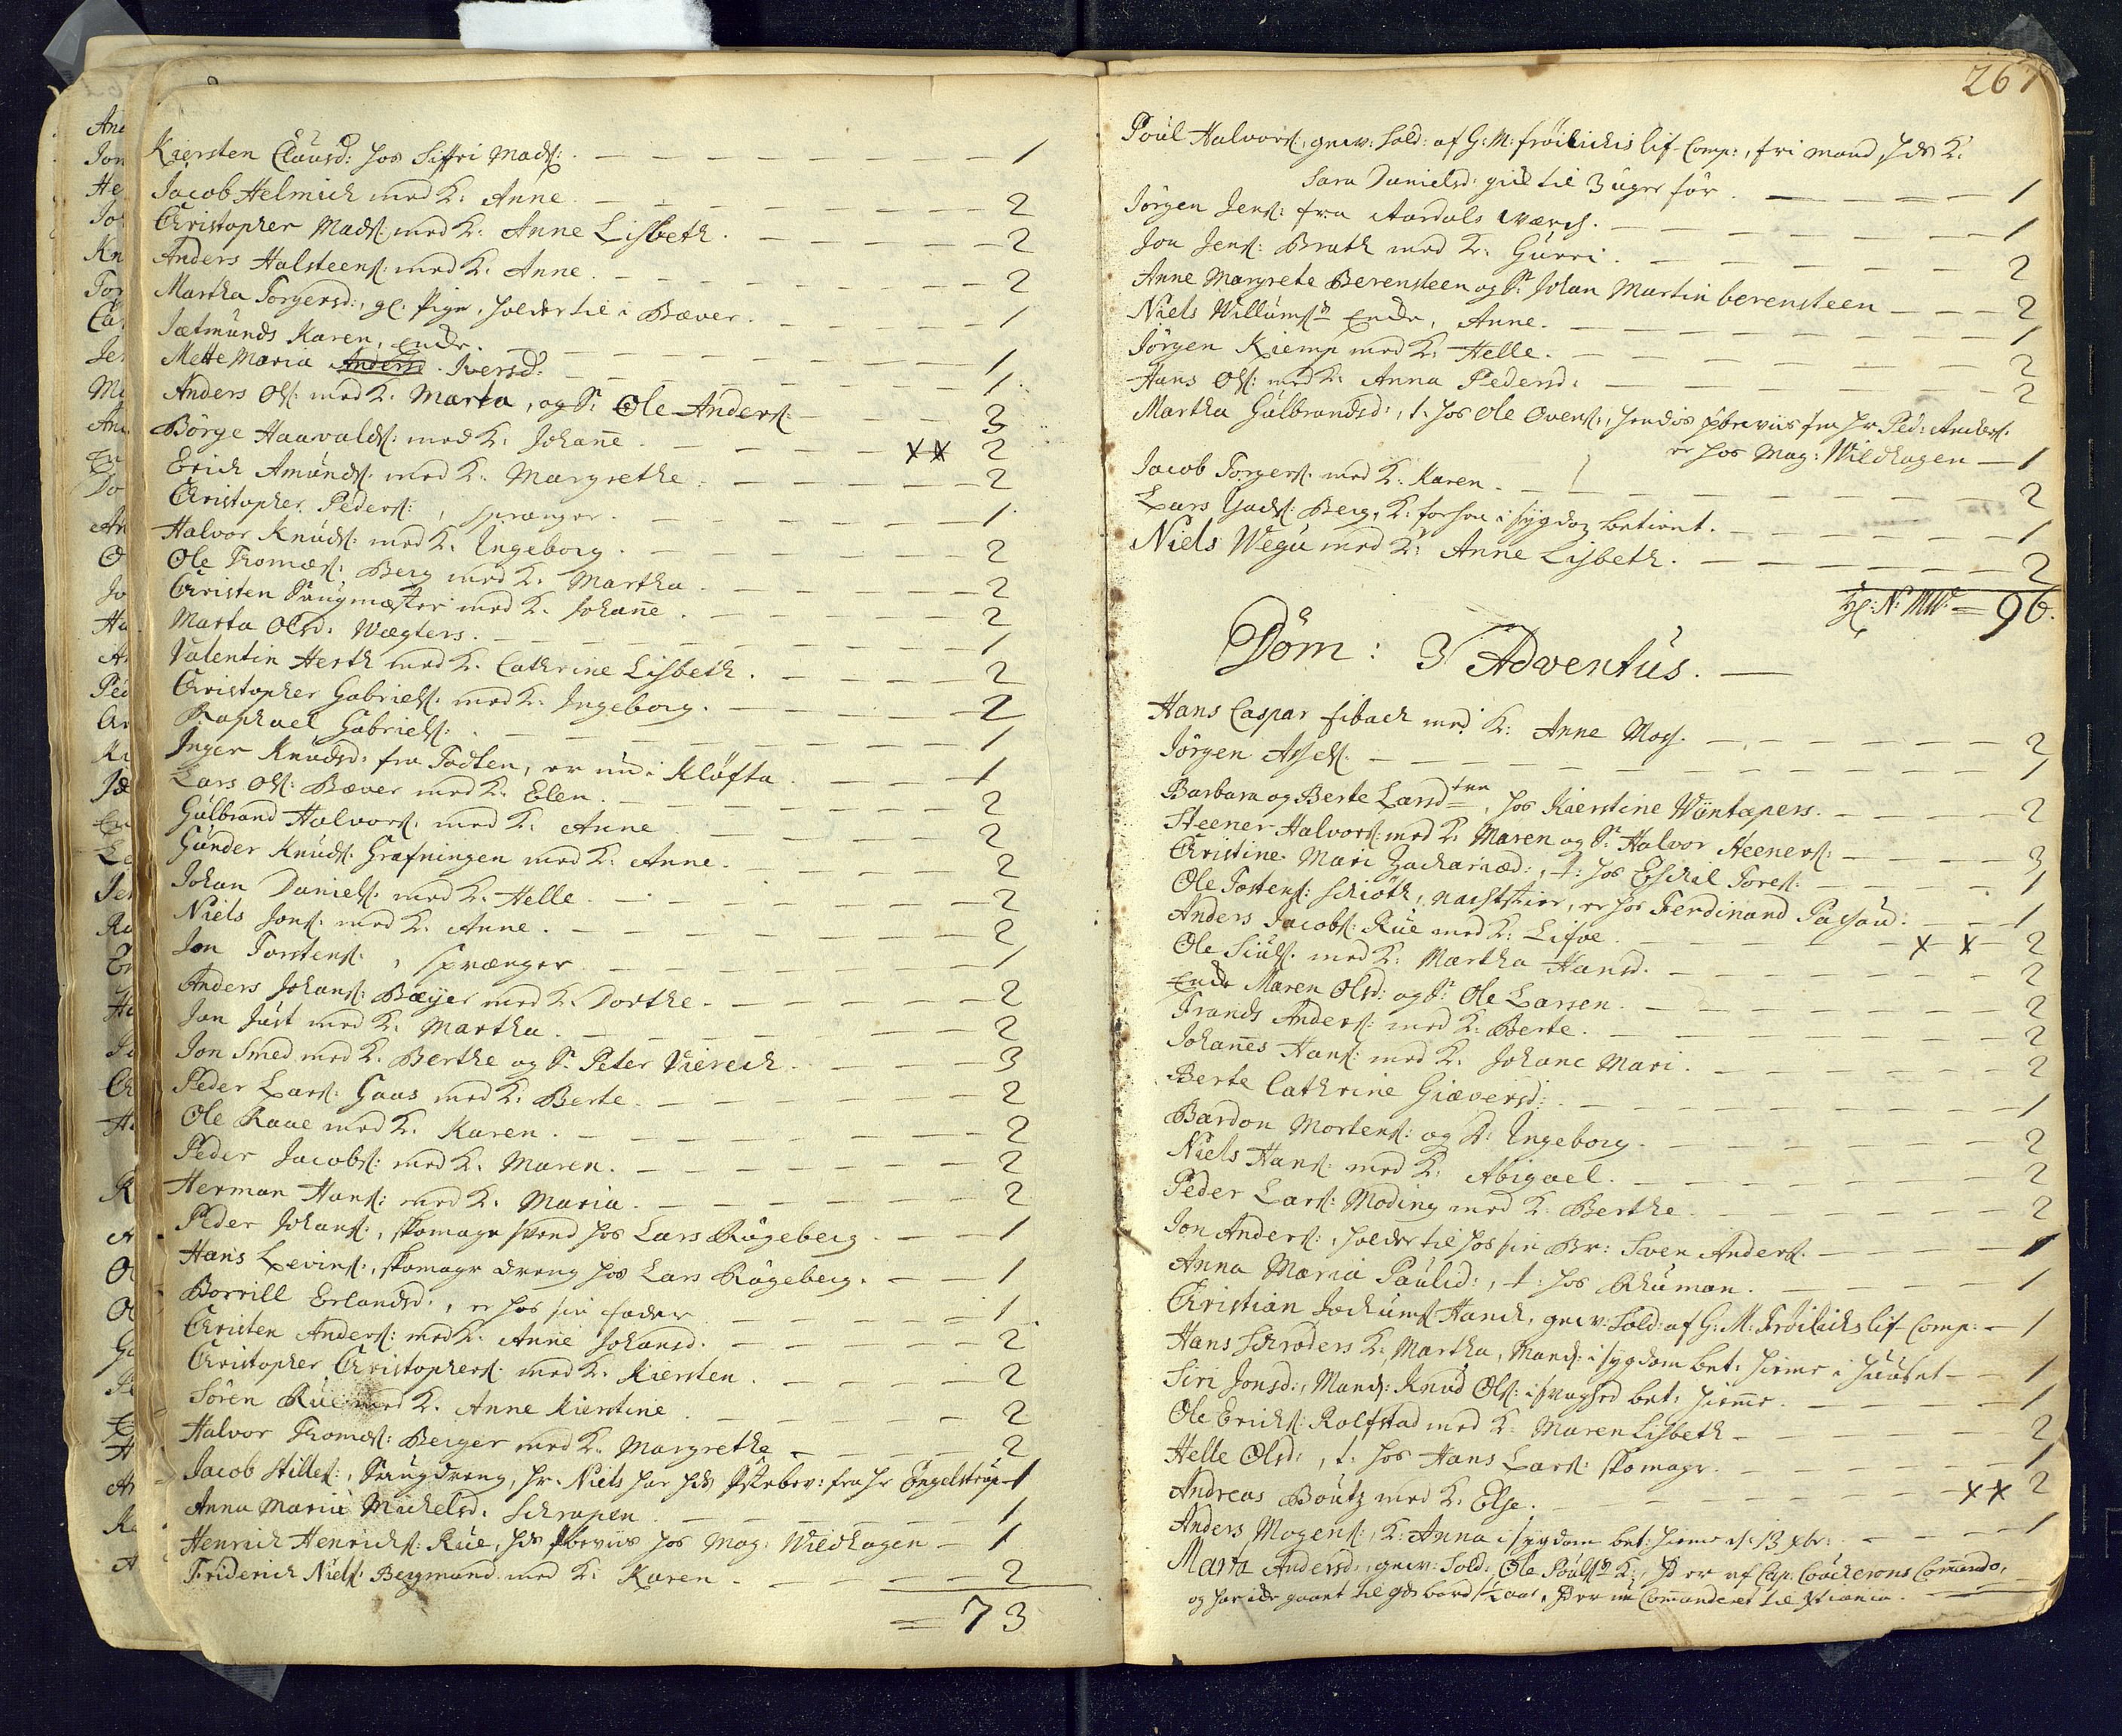 Kiersten Clausd: hos Siffri Mads: — 1
Jacob Helmich med K: Anne — 2
Christopher Mads: med K: Anne Lisbeth. — 2
Anders Halsteens: med K. Anne. — 2
Martha Torgersd:, gl: Pige, holder til i Bæver. — 1
Jætmunds Karen, Encke. — 1
Mette Maria Anders Iversd: — 1
Anders Ols: med K. Marta, og S: Ole Anders: — 3
Börge Haavalds: med K: Johanne. — XX 2
Erich Amunds: med K: Margrethe. — 2
Christopher Peders:, sprænger. — 1
Halvor Knuds: med K. Ingeborg. — 2
Ole Thomæs: Berg med K. Martha. — 2
Christen Saugmester med K. Johanne. — 2
Marta Olsd: Wægters. — 1
Valentin Herth med K. Cathrine Lisbeth. — 2
Christopher Gabriels: med K: Ingeborg. — 2
Raphael Gabriels: — 1
Inger Knudsd: fra Todten, er nu i Klöfta — 1
Lars Ols: Bæver med K: Elen. — 2
Gulbrand Halvors: med K: Anne — 2
Gunder Knuds: Grafningen med K: Anne. — 2
Johan Daniels: med K. Helle. — 2
Niels Jons: med K: Anne. — 2
Jon Torstens:, sprænger — 1
Anders Johans: Bæyer med K. Dorthe. — 2
Jan Just med K: Martha. — 2
Jon Smed med K: Berthe og S: Peter Viereck. — 3
Peder Lars: Gaas med K: Berte. — 2
Ole Raae med K. Karen. — 2
Peder Jacobs: med K. Maren. — 2
Herman Hans: med K: Maria. — 2
Peder Johans:, skomager svend hos Lars Rögeberg. — 1
Hans Levins:, skomager dreng hos Lars Rögeberg. — 1
Borrill Erlandsd:, er hos sin fader — 1
Christen Anders: med K. Anne Johansd. — 2
Christopher Christophers: med K. Kiersten. — 2
Sören Rue med K. Anne Kierstine — 2
Halvor Thomæs: Berger med K. Margrethe — 2
Jacob Stilles:, Saugdreng, hr. Niels har hds Skrbev: fra hr Engelstrup — 1
Anna Maria Michelsd. Schrapen — 1
Henrich Henrichs: Rue, hds skbeviis hos Mag: Wildhagen — 1
Friderich Niels: Bergmand med K: Karen. — 2
= 73
267
Poul Halvors:, gev: Sold: af G: M: Fröilichs lif-Comp:, fri mand, hds K.
Sara Danielsd: gik til 3 uger för — 1
Jörgen Jens: fra Aardals værch. — 1
Jon Jens: Brath med K: Gurri. — 2
Anne Margrete Berensteen og S: Johan Martin berensteen — 2
Niels Willums: Encke, Anne. — 1
Jörgen Kiemp med K. Helle. — 2
Hans Ols: med K: Anna Pedersd: — 2
Martha Gulbrandsd:, t. hos Ole Ovens:, hendes skbeviis fra hr Ped: Anchers.
er hos Mag: Wildhagen — 1
Jacob Torgers: med K. Karen. — 2
Lars Berg, K: forhen i sygdom betient. — 1
Niels Wegu med K: Anne Lisbeth. — 2
= 96.
Dom: 3 Adventus. —
Hans Caspar Fibach med K: Anne Mos. — 2
Jörgen — 1
Barbara og Berte Larsdtre, hos Kierstine Wintapers. — 2
Steener Halvors: med K: Maren og S: Halvor Steeners: — 3
Christine Mari Zachariæd:, t: hos Eschil Tores: — 1
Ole Tostens: Schiöth, nachtstier, er hos Ferdinand Passau: — 1
Anders Jacobs: Rue med K: Lisbe. — X X 2
Ole Siuls: med K: Martha Hansd. — 2
Encke Maren Olsd: og S: Ole Larsen. — 2
Frands Anders: med K: Berte. — 2
Johannes Hans: med K. Johane Mari. — 2
Berte Cathrine Giæversd: — 1
Bardon Mortens: og K: Ingeborg. — 2
Niels Hans: med K. Abigael. — 2
Peder Lars: Moding med K: Berthe — 2
Jon Anders:, holder til hos sin Br: Sven Anders: — 1
Anna Maria Paulsd:, t: hos Rhuman. — 1
Christian Jochums: Hanch, gev: Sold: af G: M: Fröilichs lif-Comp: — 1
Hans Schröders K: Martha, Mand: i sygdom bet: hieme i huuset — 1
Siri Jonsd:, Mand: Knud Ols: i svaghed bet: hieme. — 1
Ole Erichs: Rolfstad med K: Maren Lisbeth — 2
Helle Olsd:, t. hos Hans Lars: skomager. — 1
Andreas Boutz med K: Else. — XX 2
Anders Mogens:, K: Anna i sygdom bet: hieme d: 13 xbr: — 1
Marta Andersd:, gev: Sold: Ole Pouls: K:, hd er af Cap: Commando,
og har icke gaaet til gds bord 1/2 aar, hd er nu Commanderet til Xtiania. —